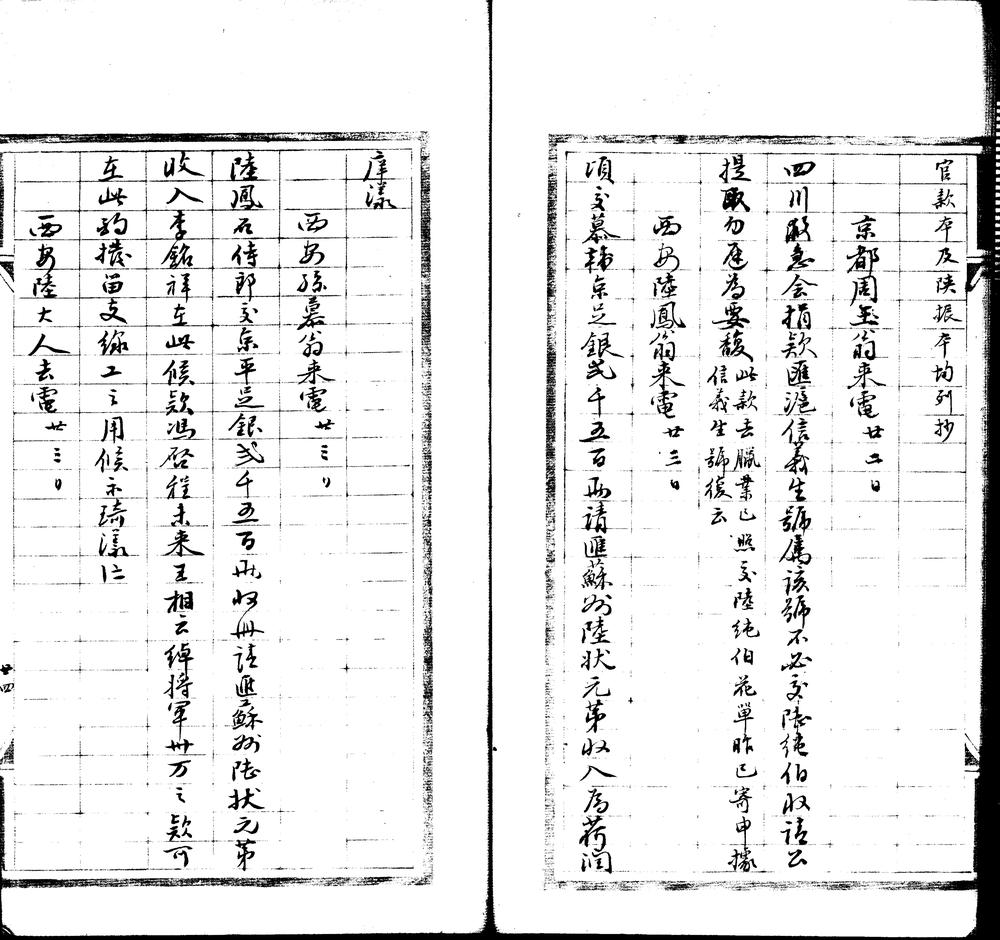 官款本及陝振本均列抄
京都周玉翁来電 廿二日
四川助急会捐款匯滬信義生號屬該號不必交陸純伯收請公
提取勿庭為要馥 此款去臘業已照交陸純伯花單昨已寄申據
信義生號復云
西安陸鳳翁来電 廿三日
頃交慕韓京足銀弍千五百兩請匯蘇州陸状元第收入為荷潤
庠漾
西安孫慕翁来電 廿三日
陸鳳石侍郎交京平足銀弍千五百兩收冊請匯蘇州陸状元第
收入李銘祥在此候款馮啓程未来王相云綽將軍卅万之款可
在此酌撥留支緑工之用候示琦漾
西安陸大人去電 廿三日
廿四